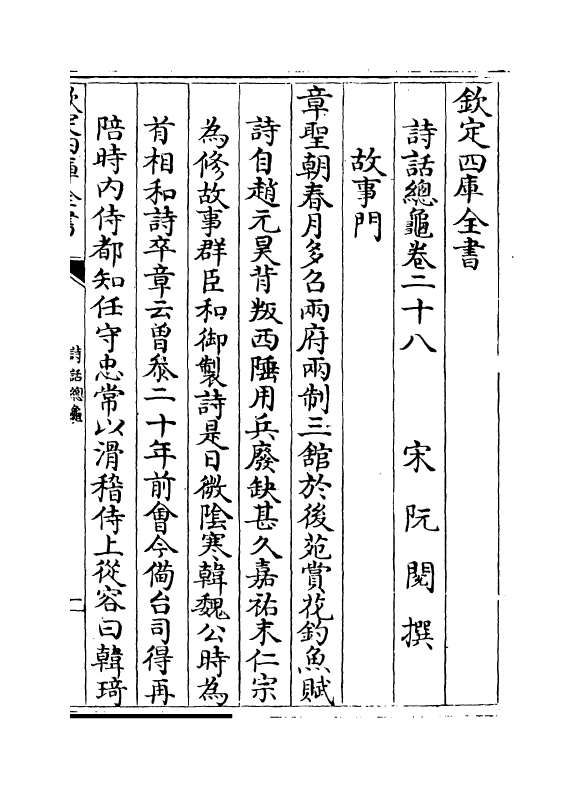 欽定四庫全書
詩話總龜卷二十八　　宋　阮　閱　撰
故事門
章聖朝春月多召兩府兩制三館於後苑賞花釣魚賦
詩自趙元昊背叛西陲用兵廢缺甚久嘉祐末仁宗
為修故事群臣和御製詩是日微陰寒韓魏公時為
首相和詩卒章云曽叅二十年前㑹今備台司得再
陪時内侍都知任守忠常以滑稽侍上從容曰韓琦
欽定四庫全書
詩話總龜